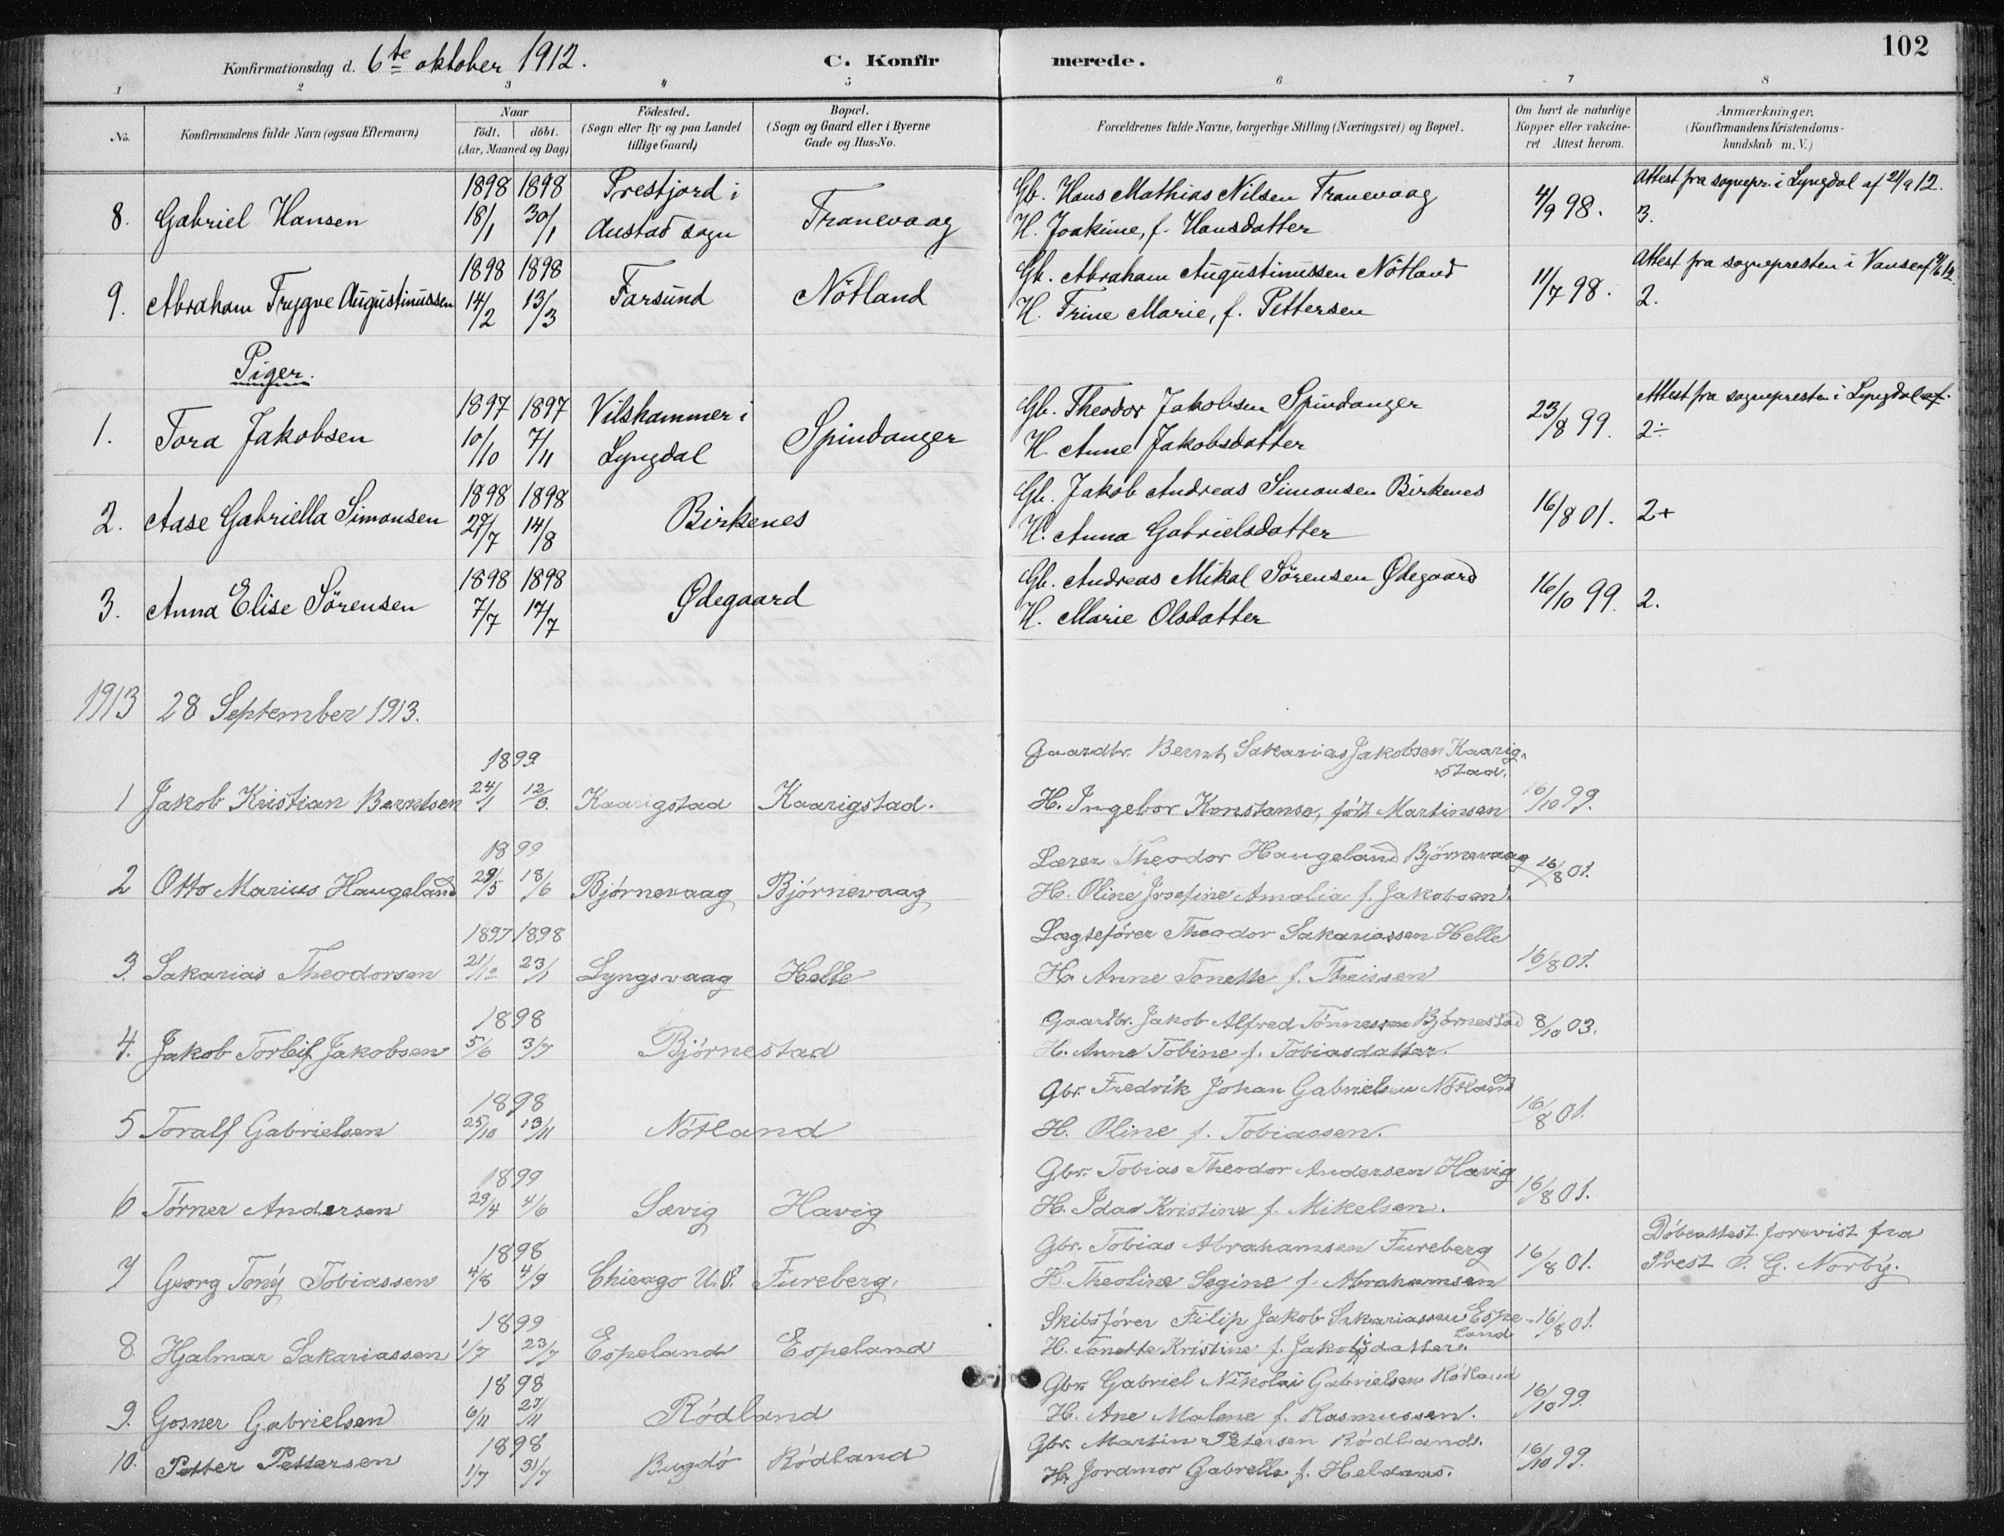 102
Konfirmationsdag d. 6te oktober 1912. C. Konfirmerede.
1 2 3 4 5 6 7 8
No. Konfirmandens fulde Navn (ogsaa Efternavn) Naar født. døbt. (Aar, Maaned og Dag) Fødested. (Sogn eller By og paa Landet tillige Gaard) Bopæl. (Sogn og Gaard eller i Byerne Gade og Hus-No. Forældrenes fulde Navne, borgerlige Stilling (Næringsvei) og Bopæl. Om havt de naturlige Kopper eller vakcineret Attest herom. Anmærkninger. (Konfirmandens Kristendomskundskab m. V.)
1898 1898 Prestjord i Gb. Hans Mathias Nilsen Tranevaag Attest fra sognepr. i Lyngdal af 21/9 12.
8. Gabriel Hansen 18/1 30/1 Austad sogn Tranevaag H. Joakime, f. Hansdatter 4/9 98. 3.
1898 1898 Gb. Abraham Augustinussen Nötland Attest fra sognepresten i Vanse af
9. Abraham Trygve Augustinussen 14/2 13/3 Farsund Nötland H. Trine Marie, f. Pettersen 11/7 98. 2.
Piger.
1897 1897 Vilshammer i Gb. Theodor Jakobsen Spindanger Attest fra sognepresten i Lyngdal af.
1. Tora Jakobsen 10/10 7/11 Lyngdal Spindanger H. Anne Jakobsdatter 23/8 99. 2÷
1898 1898 Gb. Jakob Andreas Simonsen Birkenes
2. Aase Gabriella Simonsen 27/7 14/8 Birkenes H. Anna Gabrielsdatter 16/8 01. 2+
1898 1898 Gb. Andreas Mikal Sörensen Ødegaard
3. Anna Elise Sörensen 7/7 17/7 Ødegaard H. Marie Olsdatter 16/10 99. 2.
1913 28 September 1913.
1899 Gaardbr. Bernt Sakarias Jakobsen Kaarigstad.
1 Jakob Kristian Berntsen 24/1 12/3. Kaarigstad Kaarigstad. H. Ingebor Konstanse, født Martinsen 16/10 99.
1899 Lærer Theodor Haugeland Bjørnevaag
2 Otto Marius Haugeland 29/5 18/6 Bjørnevaag Bjørnevaag H. Oline Josefine Amalia f. Jakobsen. 16/8 01.
1897 1898 Lægtefører Theodor Sakariassen Helle
3. Sakarias Theodorsen 21/12 23/1 Lyngsvaag Helle H. Anne Tonette f. Theissen 16/8 01.
1898 Gaardbr. Jakob Alfred Tønnessen Bjørnestad
4. Jakob Torleif Jakobsen 5/6 3/7 Bjørnestad H. Anne Tobine f. Tobiasdatter. 8/10 03.
1898 Gbr. Fredrik Johan Gabrielsen Nötland
5 Toralf Gabrielsen 25/10 13/11 Nötland H. Oline f. Tobiassen. 16/8 01.
1899 Gbr. Tobias Theodor Andersen Havig
6 Tørner Andersen 29/4 4/6 Sævig Havig H. Ida Kristine f. Mikelsen. 16/8 01.
1898 Gbr. Tobias Abrahamsen Fureberg Döbeattest forevist fra
7 Georg Tony Tobiassen 4/8 4/9 Chicago U.S. Fureberg. H. Theoline Segine f. Abrahamsen 16/8 01. Prest O. G. Norby.
1899 Skibsfører Filip Jakob Sakariassen Espeland
8. Hjalmar Sakariassen 1/7 23/7 Espeland Espeland H. Tonette Kristine f. Jakobsdatter. 16/8 01.
1898 Gbr. Gabriel Nikolai Gabrielsen Rödland
9. Gosner Gabrielsen 6/11 27/11 Rödland H. Ane Malene f. Rasmussen. 16/10 99.
1898 Gbr. Martin Petersen Rödland.
10. Petter Pettersen 1/7 31/7 Bugdö Rödland H. Jordmor Gabrelle f. Heldaas. 16/10 99.